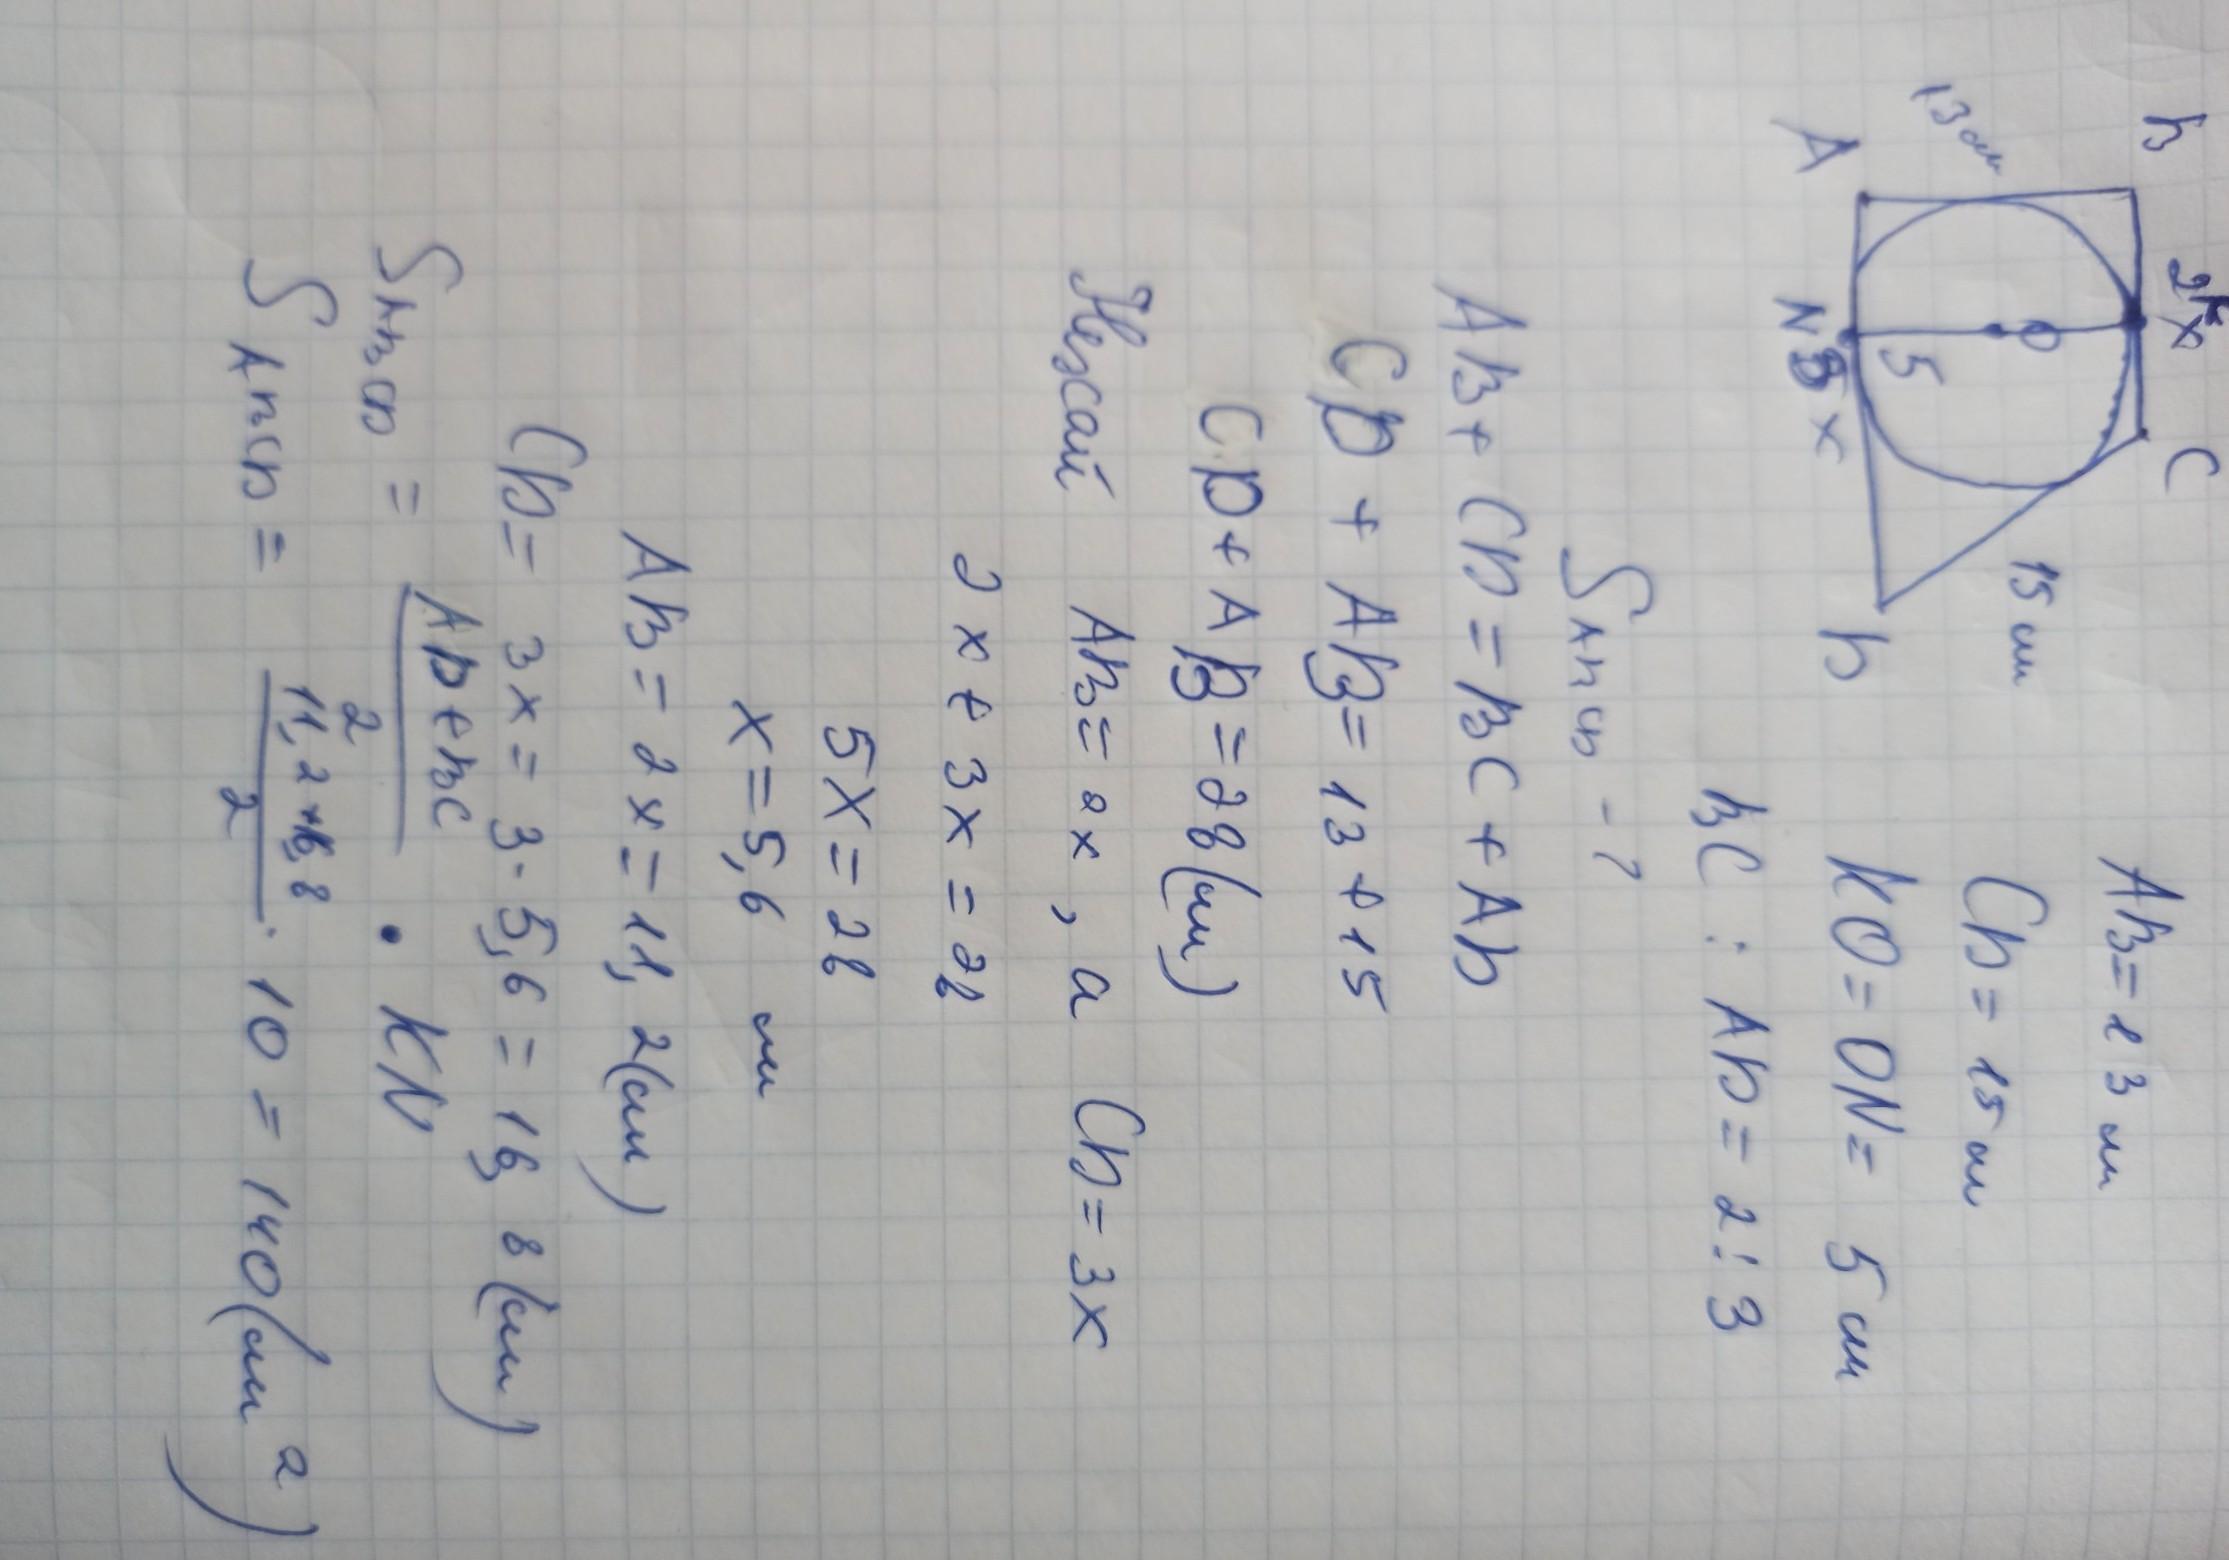 B 2x C
K
13 см
O
15 см
5
A N 3x D
AB = 13 см
CD = 15 см
KO = ON = 5 см
BC : AD = 2 : 3
S ABCD - ?
AB + CD = BC + AD
CD + AB = 13 + 15
CD + AB = 28 (см)
Нехай AB = 2x, а CD = 3x
2x + 3x = 28
5x = 28
x = 5,6 см
AB = 2x = 11,2 (см)
CD = 3x = 3 · 5,6 = 16,8 (см)
S ABCD = AD + BC / 2 · KN
S ABCD = 11,2 + 16,8 / 2 · 10 = 140 (см²)